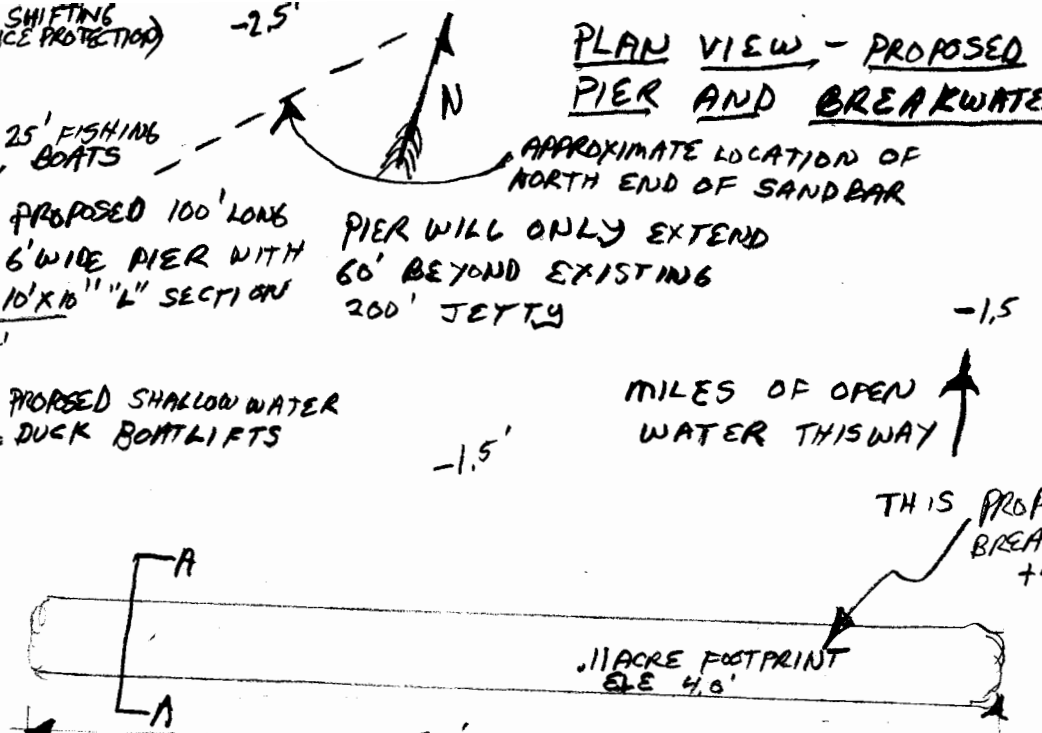 SHIFTING
ICE PROTECTION)
-2.5'
N
PLAN VIEW - PROPOSED
PIER AND BREAKWATE
25' FISHING
BOATS
APPROXIMATE LOCATION OF
NORTH END OF SANDBAR
PROPOSED 100' LONG
6' WIDE PIER WITH
10'X10' "L" SECTION
PIER WILL ONLY EXTEND
60' BEYOND EXISTING
200' JETTY
-1.5
MILES OF OPEN
WATER THIS WAY
PROPOSED SHALLOW WATER
DUCK BOATLIFTS
-1.5'
THIS PROP
BREA
A
A
.11 ACRE FOOTPRINT
ELE 4.0'